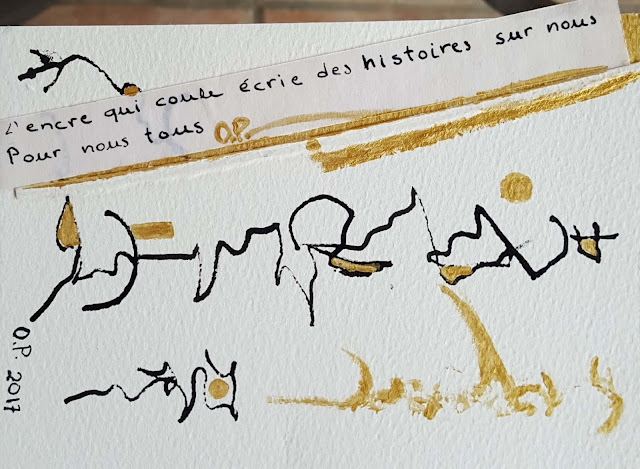 L'encre qui coule écrie des histoires sur nous
Pour nous tous O.P.
O.P. 2017